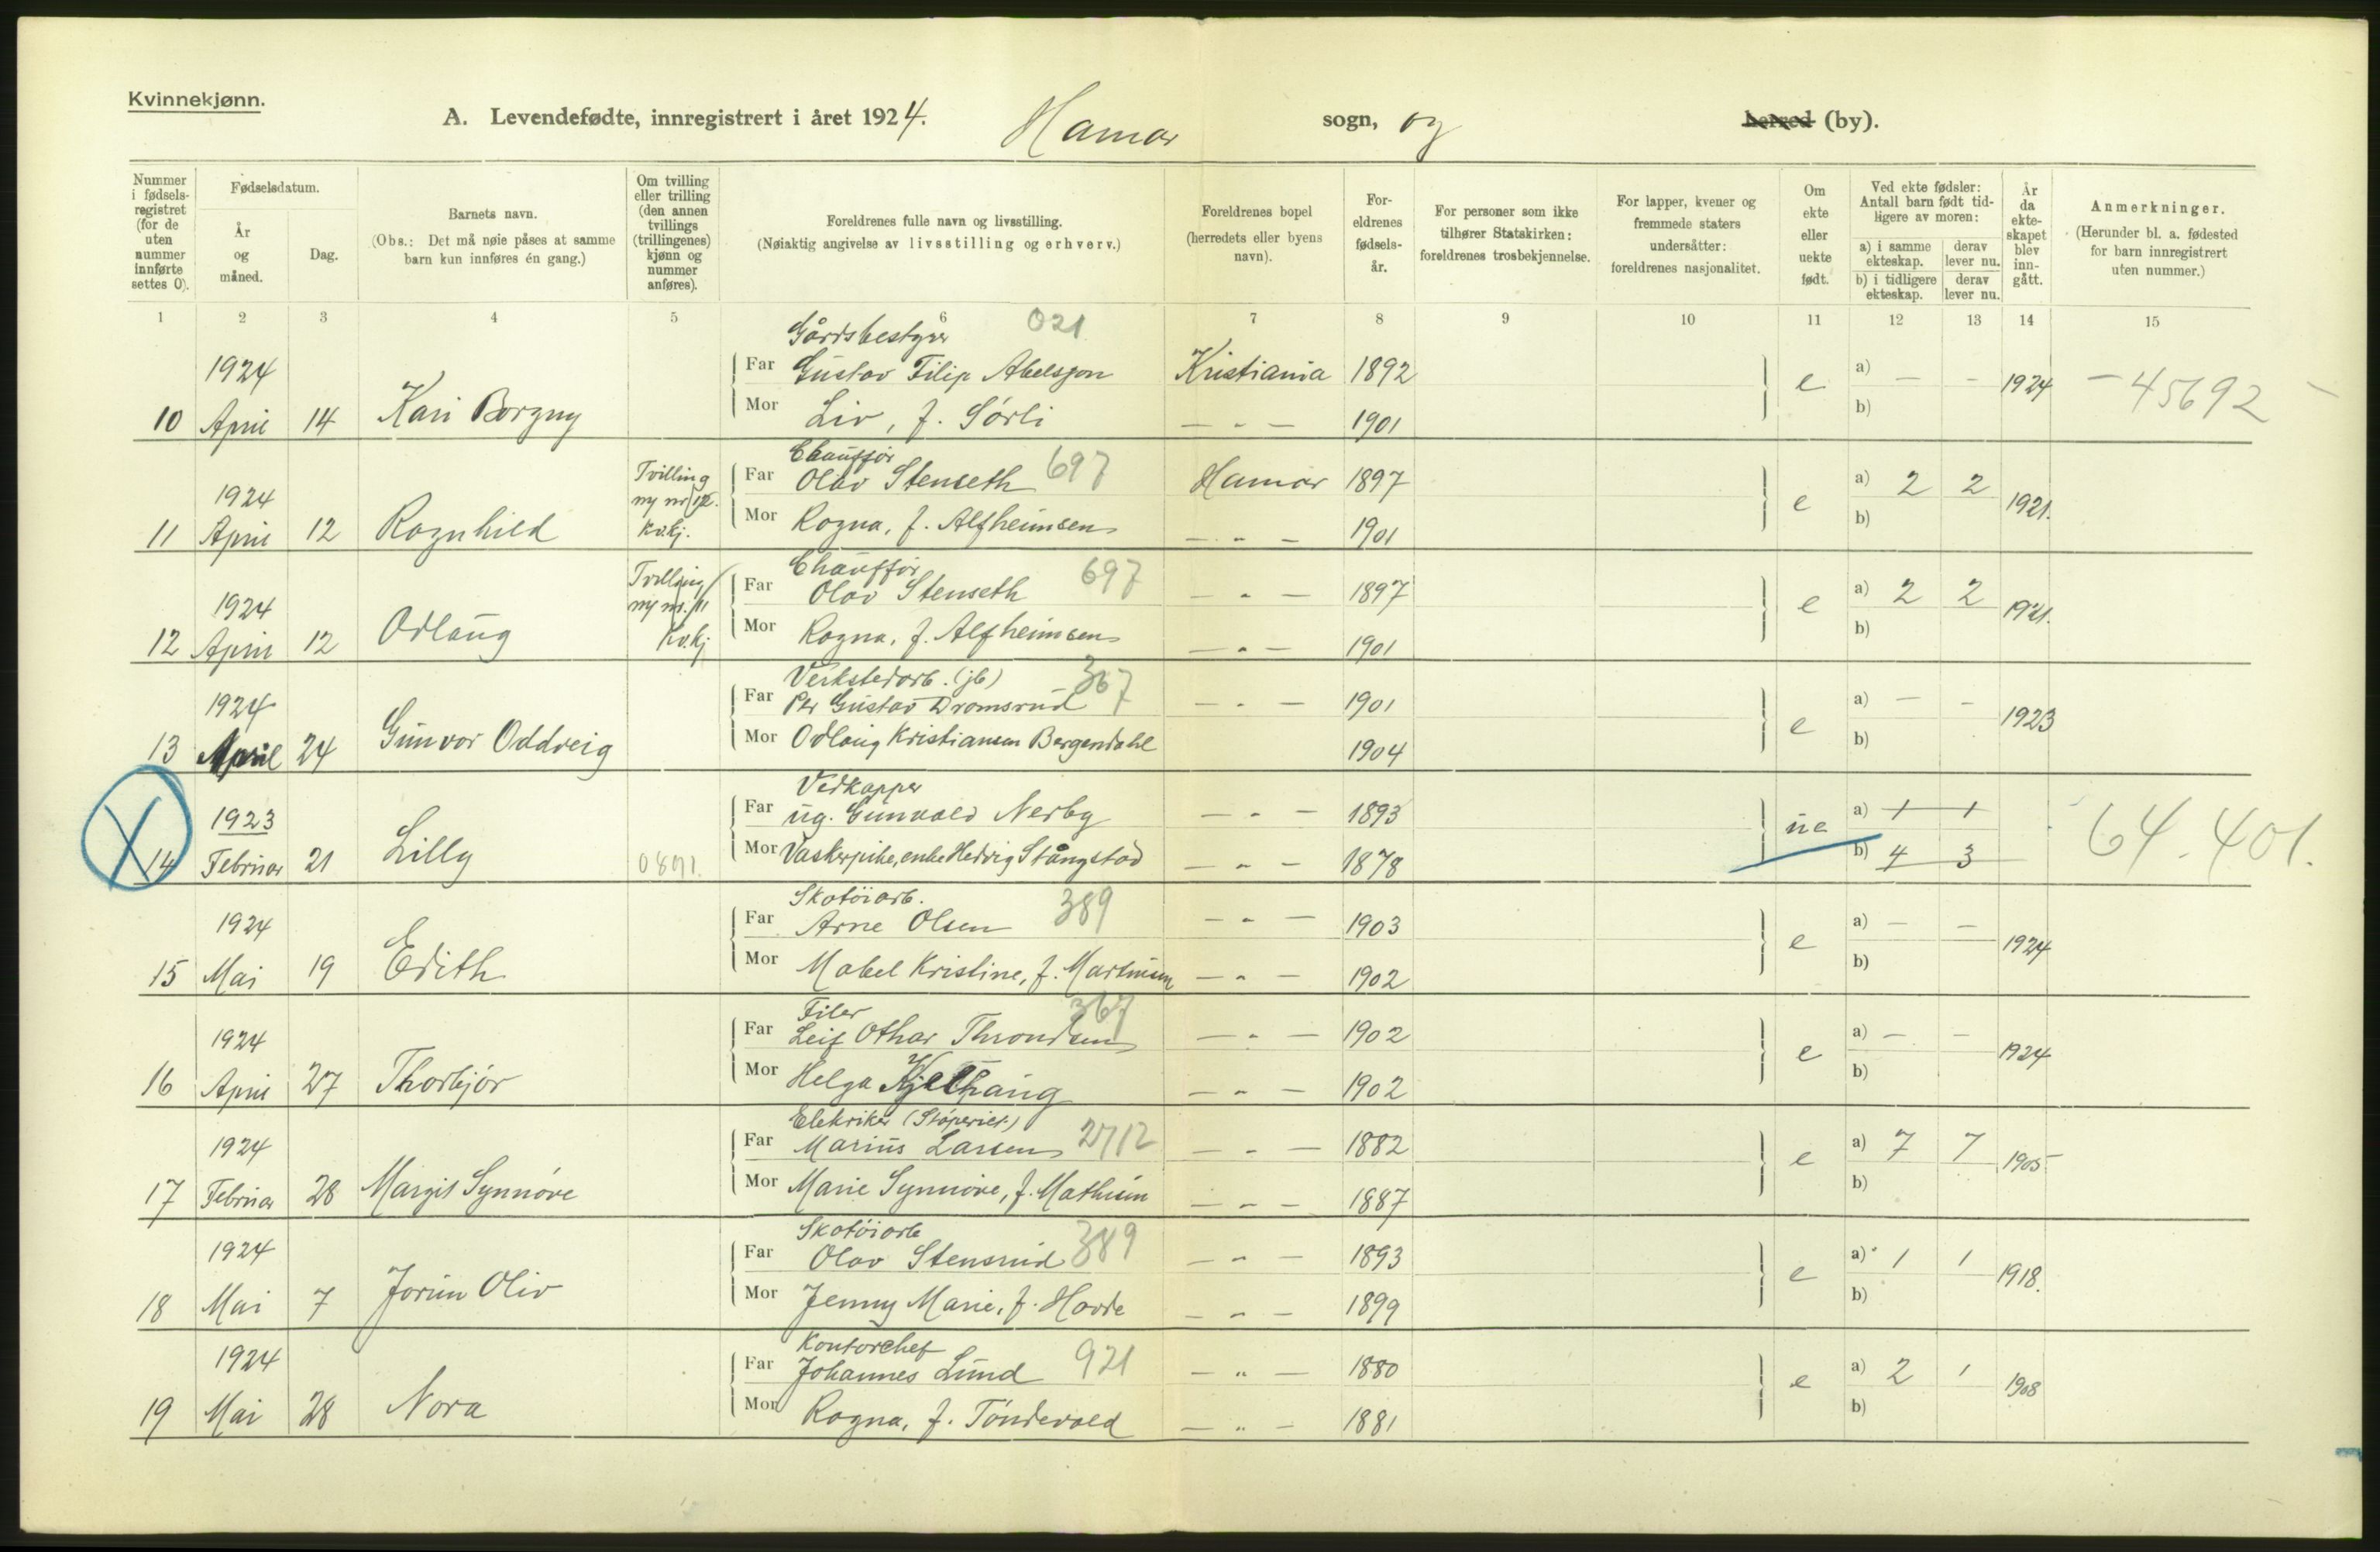 Kvinnekjønn.
A. Levendefødte, innregistrert i året 1924. Hamar sogn, og herred (by).
Nummer i fødselsregistret (for de uten nummer innførte settes 0).
Fødselsdatum.
År og måned.
Dag.
Barnets navn.
(Obs.: Det må nøie påses at samme barn kun innføres én gang.)
Om tvilling eller trilling (den annen tvillings (trillingenes) kjønn og nummer anføres).
Foreldrenes fulle navn og livsstilling.
(Nøiaktig angivelse av livsstilling og erhverv.)
Foreldrenes bopel (herredets eller byens navn).
Foreldrenes fødselsår.
For personer som ikke tilhører Statskirken: foreldrenes trosbekjennelse.
For lapper, kvener og fremmede staters undersåtter: foreldrenes nasjonalitet.
Om ekte eller uekte født.
Ved ekte fødsler: Antall barn født tidligere av moren:
a) i samme ekteskap. derav lever nu.
b) i tidligere ekteskap. derav lever nu.
År da ekteskapet blev inngått.
Anmerkninger.
(Herunder bl. a. fødested for barn innregistrert uten nummer.)
1 2 3 4 5 6 7 8 9 10 11 12 13 14 15
Gårdsbestyrer 021
1924 Far Gustav Filip Abelsson Kristiania 1892 e a) — - 1924 - 45692 -
10 April 14 Kari Borgny Mor Liv, f. Sørli — " — 1901 b)
Chauffør 697
1924 Tvilling Far Olav Stenseth Hamar 1897 e a) 2 2 1921.
11 April 12 Ragnhild ny nr 12. kv.kj. Mor Ragna, f. Alfheimsen — " — 1901 b)
Chauffør 697
1924 Tvilling Far Olav Stenseth — " — 1897 e a) 2 2 1921.
12 April 12 Odlaug ny nr. 11 kv.kj Mor Ragna, f. Alfheimsen — " — 1901 b)
Verkstedarb. (jb) 367
1924 Far Per Gustav Dromsrud — " — 1901 e a) — - 1923
13 April 24 Gunvor Oddveig Mor Odlaug Kristiansen Bergendahl 1904 b)
Vedkapper
1923 Far ug. Gunvald Nerby — " — 1893 ue a) 1 1 64.401.
14 Februar 21 Lilly 0891. Mor Vaskerpike, enke Hedvig Stangstad — " — 1878 b) 4 3
Skotøiarb. 389
1924 Far Arne Olsen — " — 1903 e a) — — 1924
15 Mai 19 Edith Mor Mabel Kristine, f. Martinsen — " — 1902 b)
Filer 367
1924 Far Leif Othar Throndsen — " — 1902 e a) — — 1924
16 April 27 Thorbjør Mor Helga Kjelhaug — " — 1902 b)
Elekriker (Støperiet) 2712
1924 Far Marius Larsen — " — 1882 e a) 7 7 1905
17 Februar 28 Margit Synnøve Mor Marie Synnøve, f. Mathisen — " — 1887 b)
Skotøiarb 389
1924 Far Olav Stensrud — " — 1893 e a) 1 1 1918.
18 Mai 7 Jorun Oliv Mor Jenny Marie, f. Hovde — " — 1899 b)
Kontorchef
1924 Far Johannes Lund 921 — " — 1880 e a) 2 1 1908
19 Mai 28 Nora Mor Ragna, f. Tøndevold — " — 1881 b)